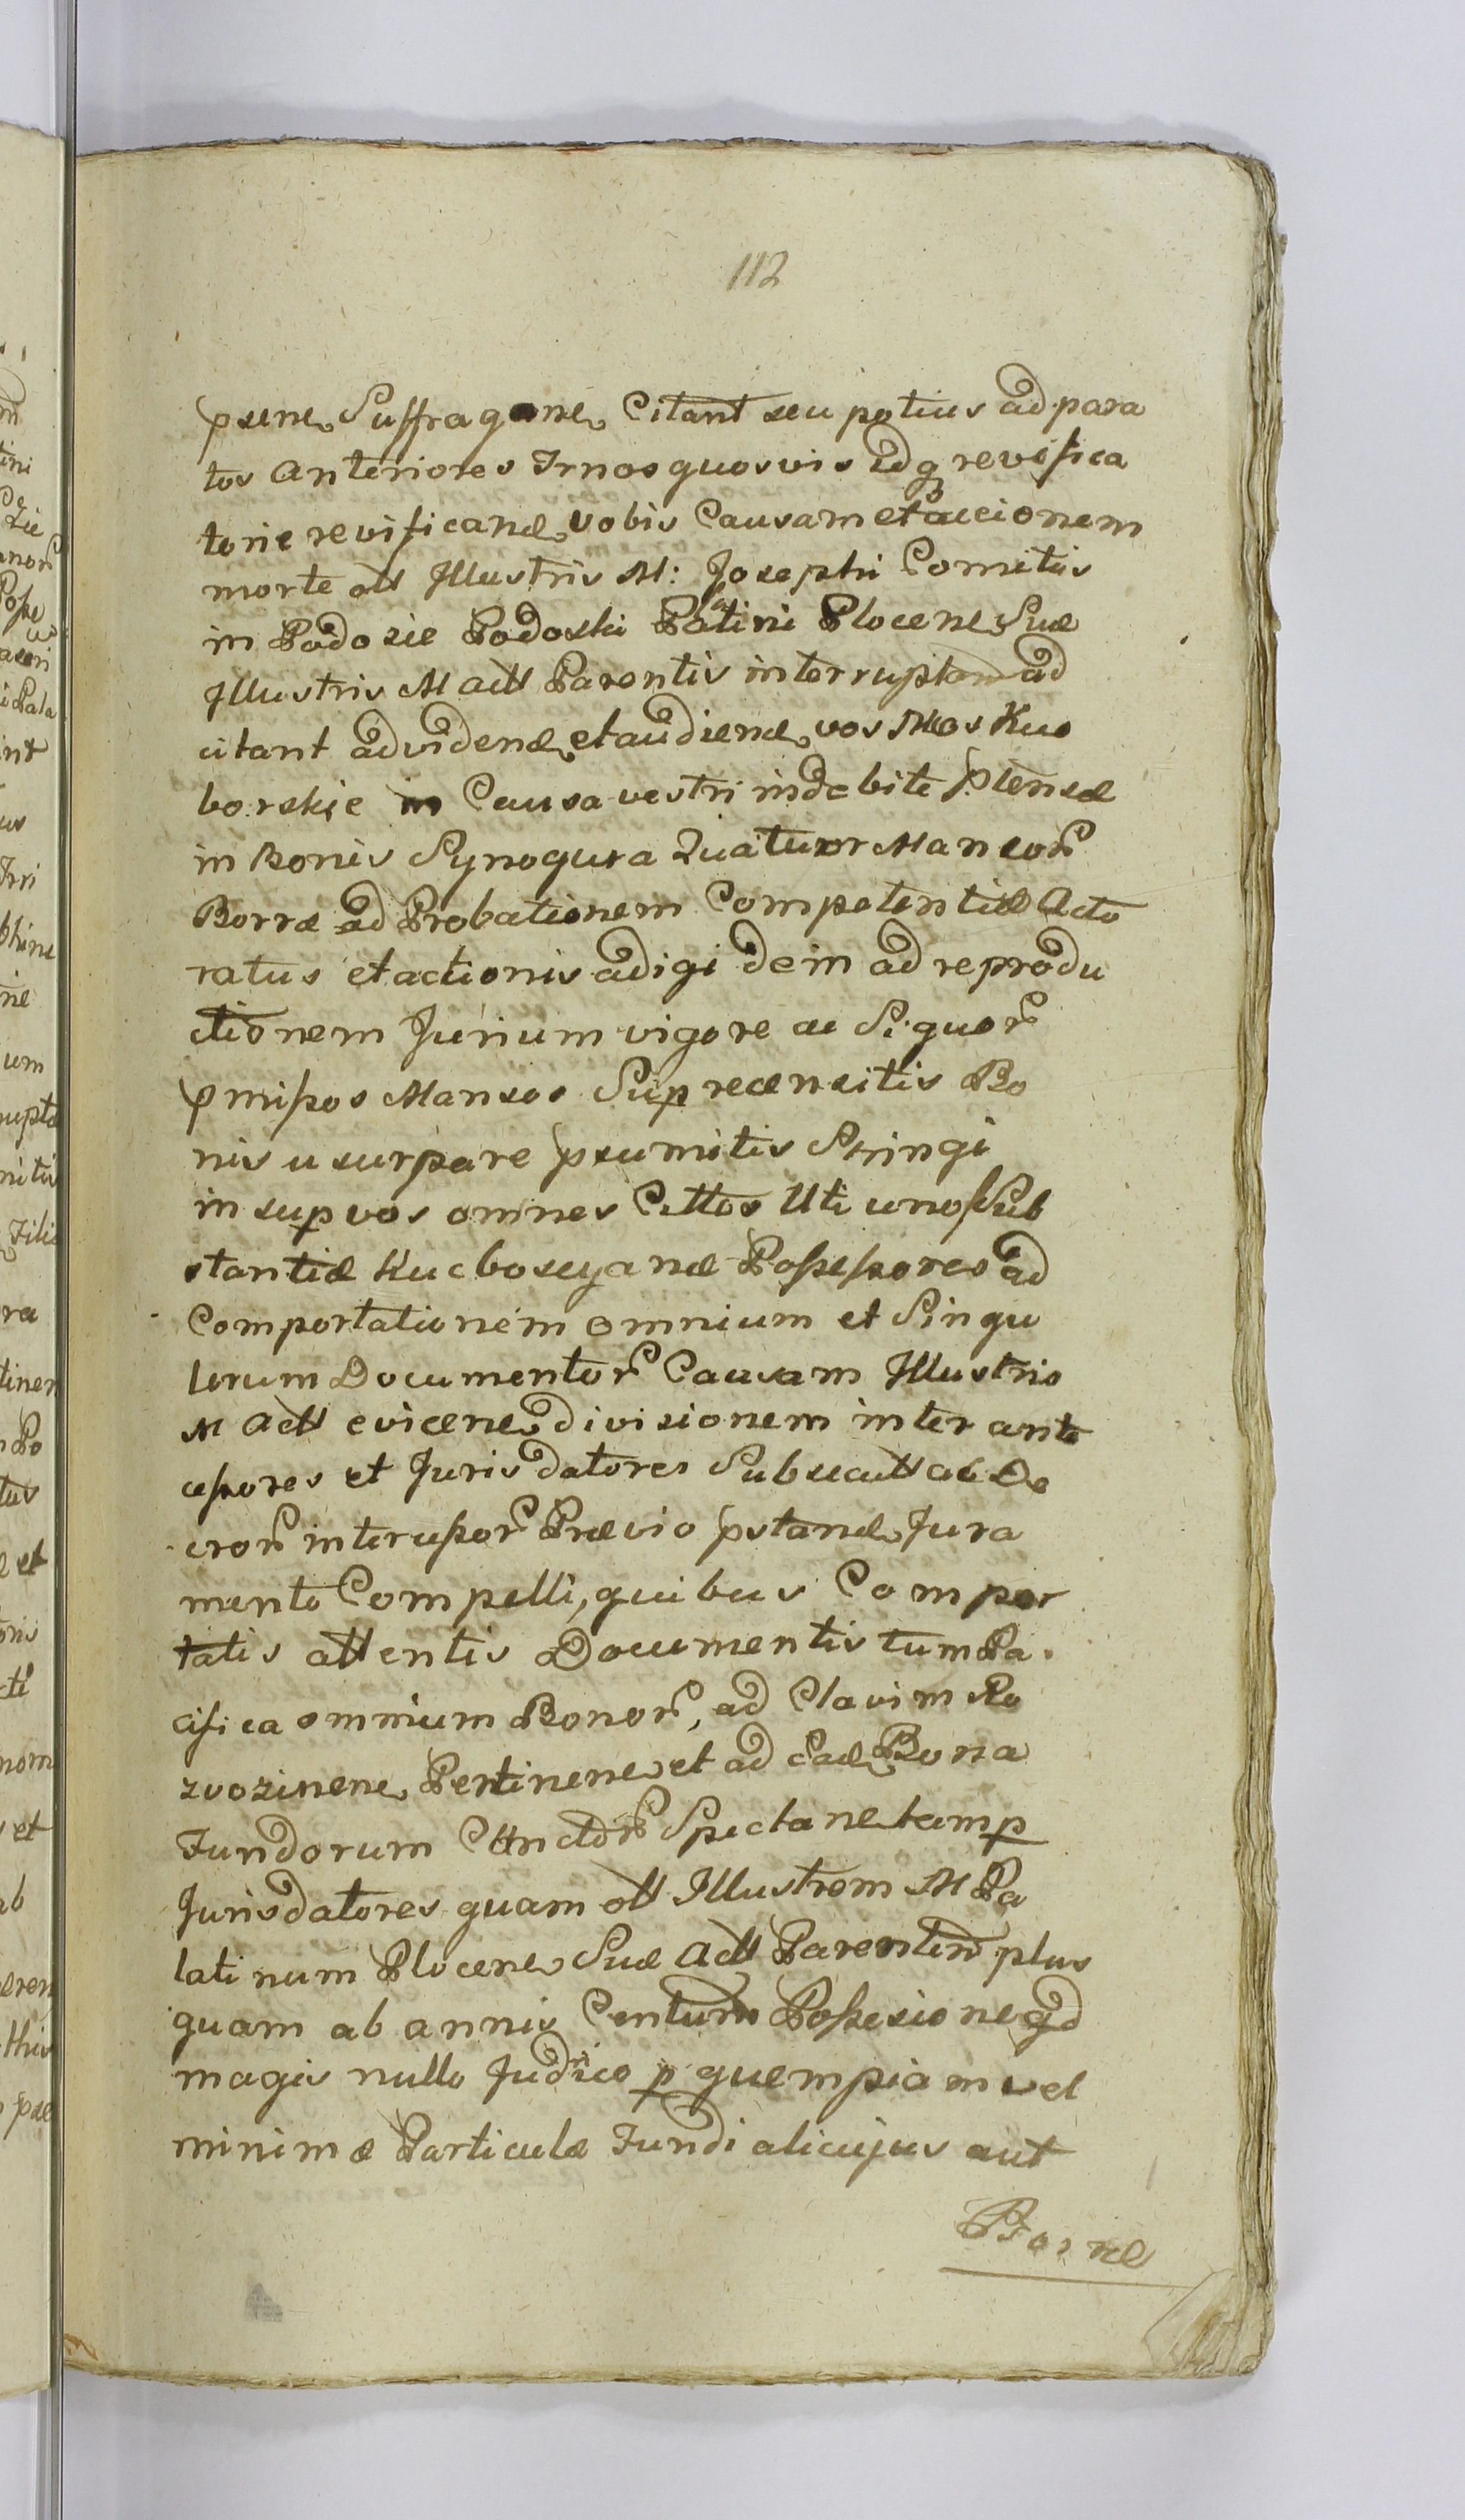 112
psene Suffragane Citant seu potius ad para
tos Anteriores Trnos quosvis idq revifica
torie revificand vobis Causam et accionem
morte olt Illustris M: Josephi Comitis
in Podosie Podoski Platini Plocens Suæ
Illustris M actt Parentis interruptam ad
citant ad vidend et audiend vos MGos Kuc
borskie in Causa vestri indebite ptensæ
in Bonis Synogura Quatuor Mansor
Borræ ad Probationem Competentiæ Acto
ratus et actionis adigi dein ad reprodu
ctionem Jurium vigore ac Si quor
pmissos Mansos Sup recensitis Bo
nis usurpare psumitis Stringi
in sup vos omnes Cittos Uti unos Sub
stantiæ Kucboscyanæ Possessores ad
Comportationem omnium et Singu
lorum Documentor Causam Illustris
M Actt evicene divisionem inter ante
cessores et Juris datores Subsecutt ab De
cror intercessor Prævio pstand Jura
mento Compelli, quibus Compor
tatis attentis Documentis tum Pa
cifica omnium Bonor, ad Clavim Ro
zvozinene Pertinene et ad ead Bona
Fundorum Cunctor Spectane tam p
Jurisdatores quam olt Illustrem M Pa
latinum Plocene Suæ Actt Parentem plus
quam ab annis Centum Possesione qd
magis nullo Judrico p quempiam vel
minimæ Particulæ Fundi alicujus aut
Borræ